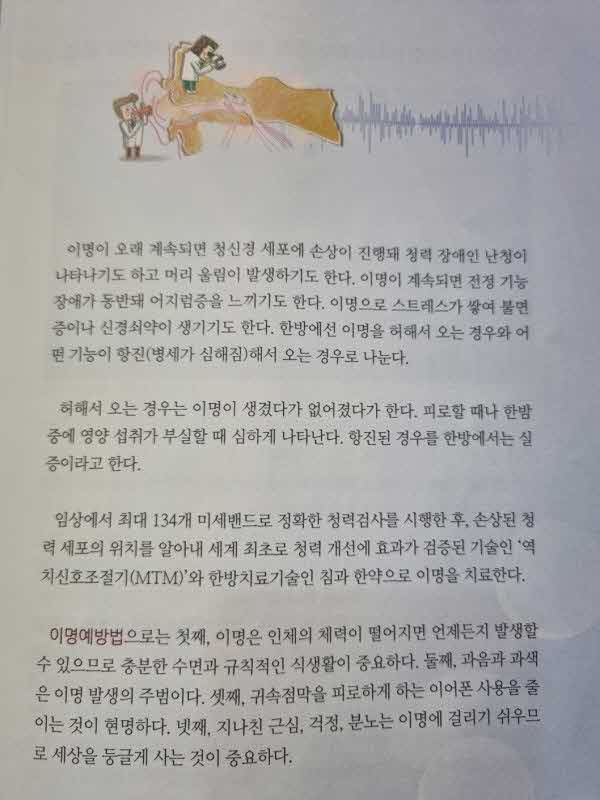 이명이 오래 계속되면 청신경 세포에 손상이 진행돼 청력 장애인 난청이
나타나기도 하고 머리 울림이 발생하기도 한다. 이명이 계속되면 전정 기능
장애가 동반돼 어지럼증을 느끼기도 한다. 이명으로 스트레스가 쌓여 불면
증이나 신경쇠약이 생기기도 한다. 한방에선 이명을 허해서 오는 경우와 어
떤 기능이 항진(병세가 심해짐)해서 오는 경우로 나눈다.
허해서 오는 경우는 이명이 생겼다가 없어졌다가 한다. 피로할 때나 한밤
중에 영양 섭취가 부실할 때 심하게 나타난다. 항진된 경우를 한방에서는 실
증이라고 한다.
임상에서 최대 134개 미세밴드로 정확한 청력검사를 시행한 후, 손상된 청
력 세포의 위치를 알아내 세계 최초로 청력 개선에 효과가 검증된 기술인 ‘역
치신호조절기(MTM)’와 한방치료기술인 침과 한약으로 이명을 치료한다.
이명예방법으로는 첫째, 이명은 인체의 체력이 떨어지면 언제든지 발생할
수 있으므로 충분한 수면과 규칙적인 식생활이 중요하다. 둘째, 과음과 과색
은 이명 발생의 주범이다. 셋째, 귀속점막을 피로하게 하는 이어폰 사용을 줄
이는 것이 현명하다. 넷째, 지나친 근심, 걱정, 분노는 이명에 걸리기 쉬우므
로 세상을 둥글게 사는 것이 중요하다.